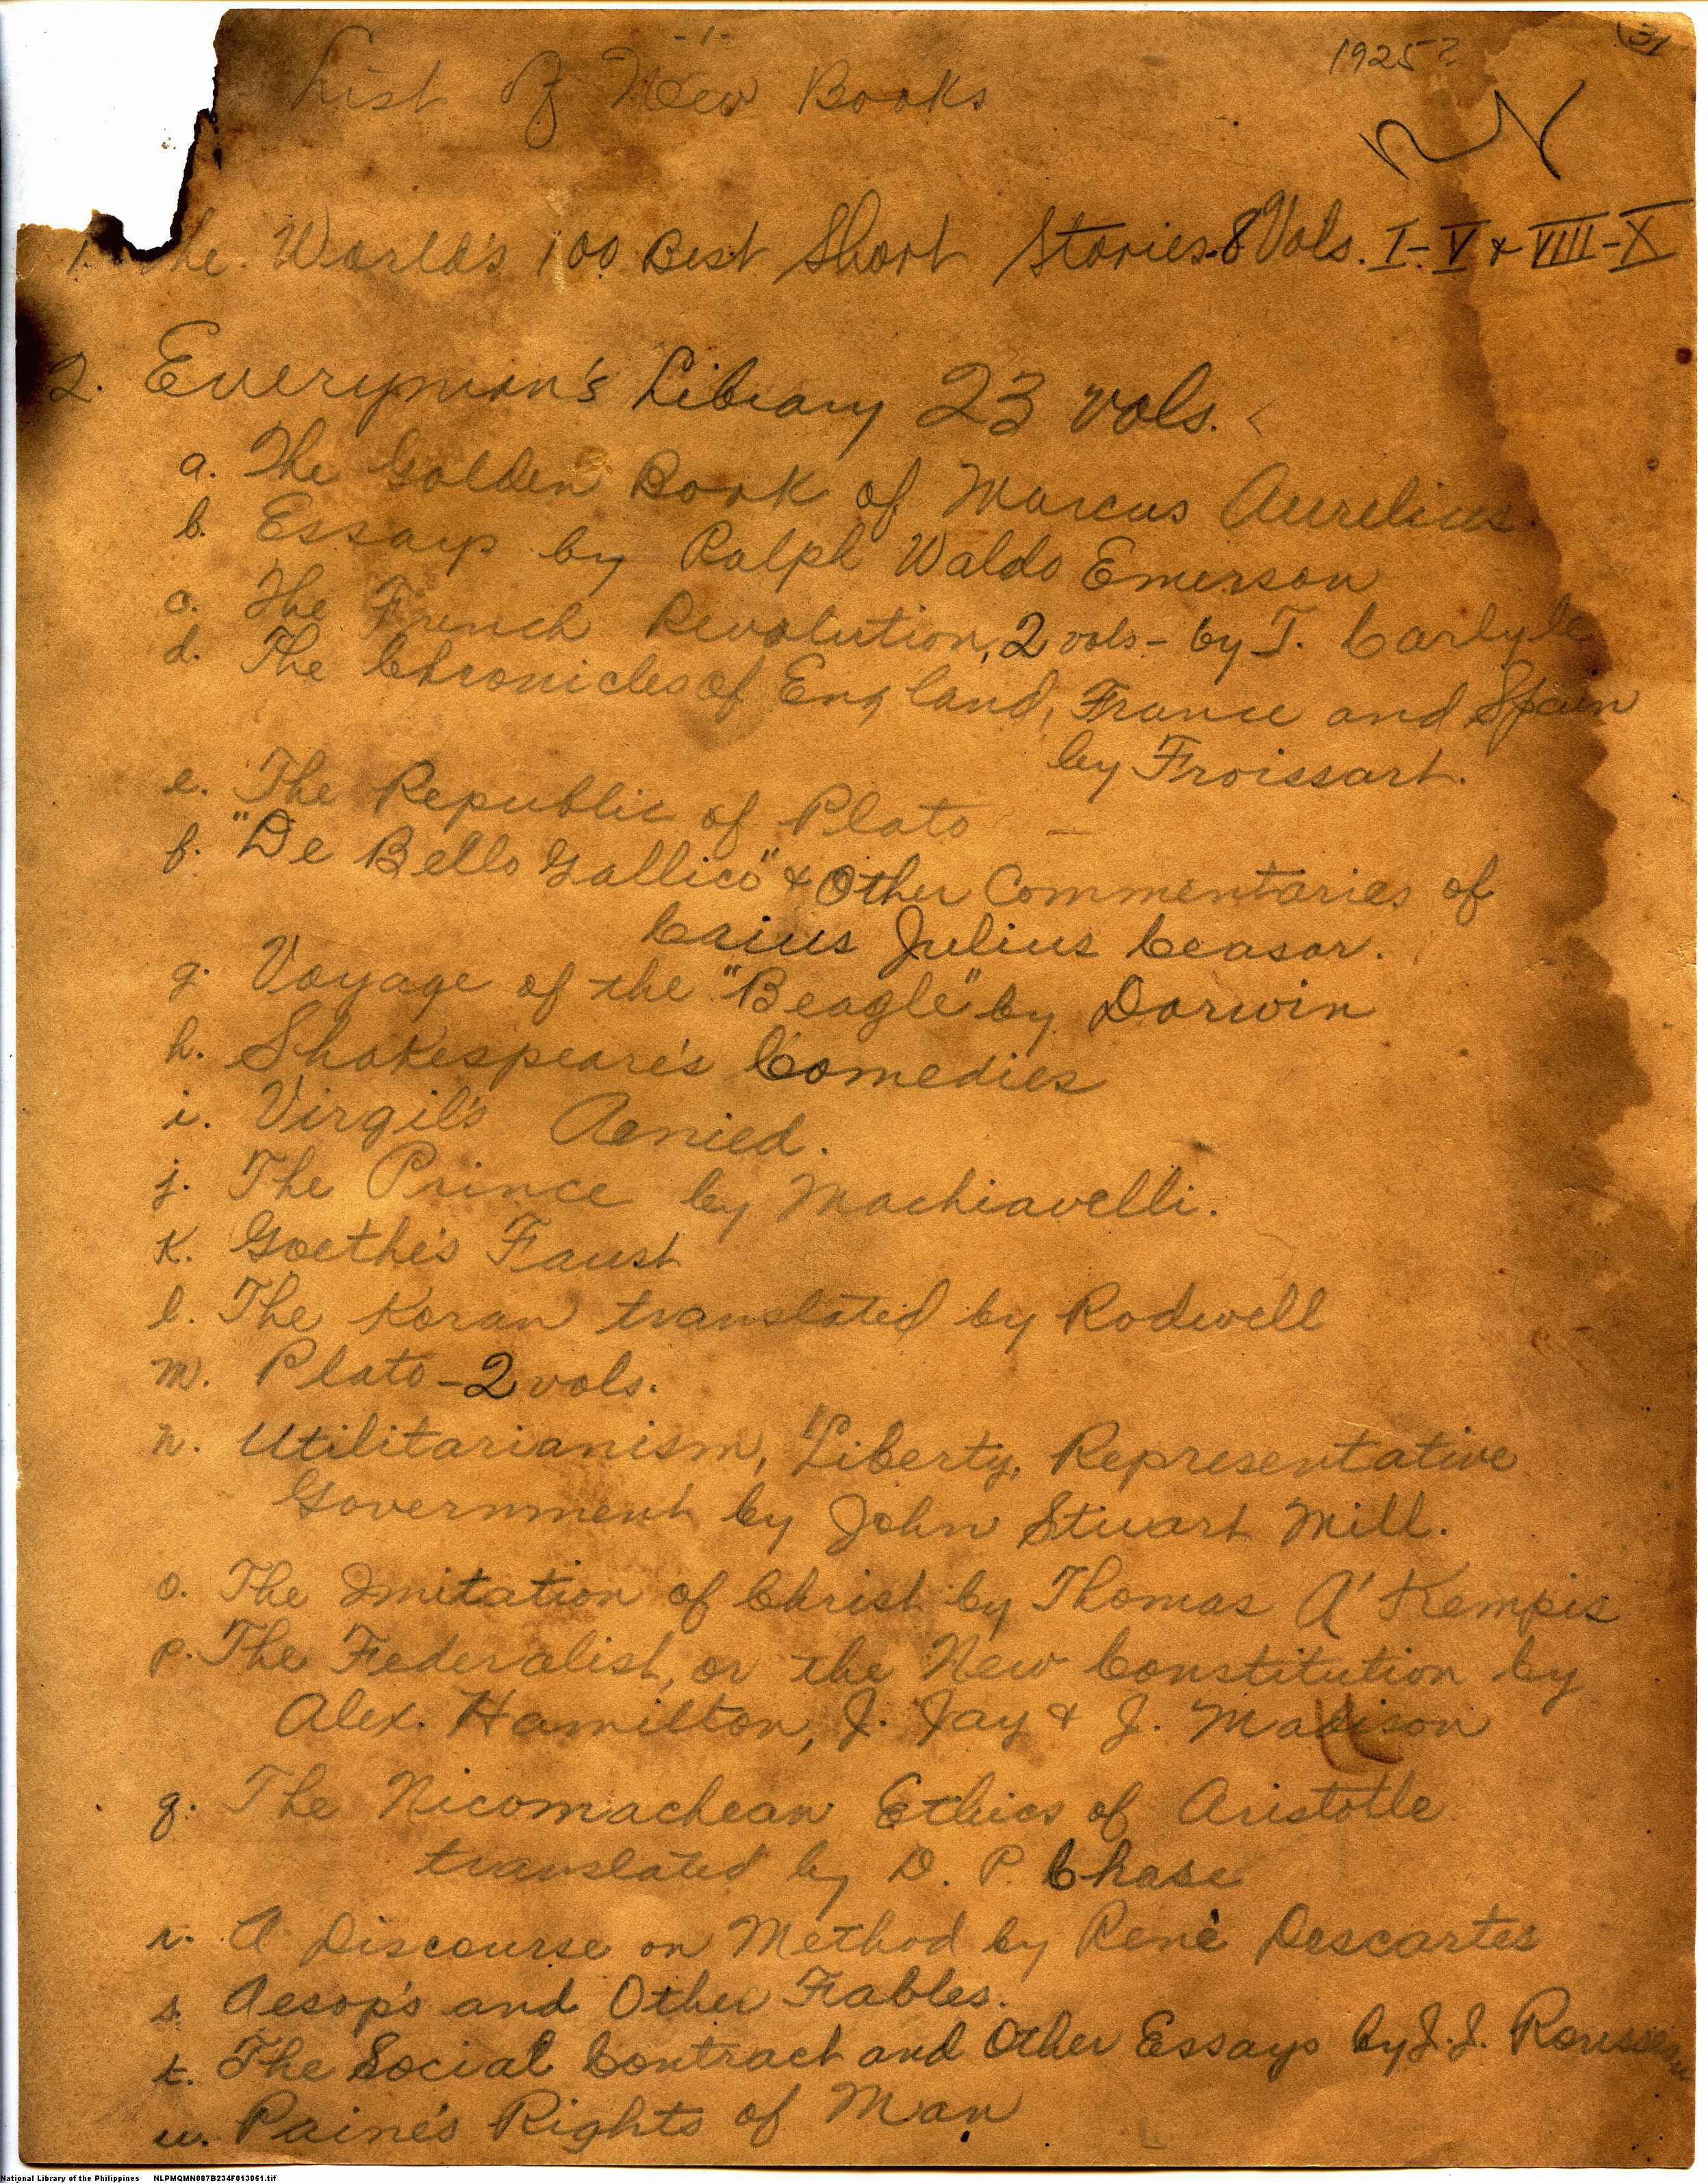 -1-
1925?
31
List Of New Books
1. The World's 100 Best Short Stories-8 Vols. I-V & VIII-X
2. Everyman's Library 23 vols.
a. The Golden Book of Marcus Aurelius
b. Essays by Ralph Waldo Emerson
c. The French Revolution, 2 vols - by T. Carlyle
d. The Chronicles of England, France and Spain
by Froissart.
e. The Republic of Plato -
f. "De Bello Gallico" & Other Commentaries of
Caius Julius Ceasar.
g. Voyage of the "Beagle" by Darwin
h. Shakespeare's Comedies
i. Virgil's Aenied.
j. The Prince by Machiavelli.
k. Goethe's Faust
l. The Koran translated by Rodwell
m. Plato - 2 vols.
n. Utilitarianism, Liberty, Representative
Government by John Stuart Mill.
o. The Imitation of Christ by Thomas A' Kempis
p. The Federalist, or the New Constitution by
Alex. Hamilton, J. Jay & J. Madison
q. The Nicomachean Ethics of Aristotle
translated by D. P. Chase
r. A Discourse on Method by Renè Descartes
s. Aesop's and Other Fables.
t. The Social Contract and Other Essays by J.J. Rousseau
u. Paine's Rights of Man
National Library of the Philippines NLPMQMN007B234F013051.tif